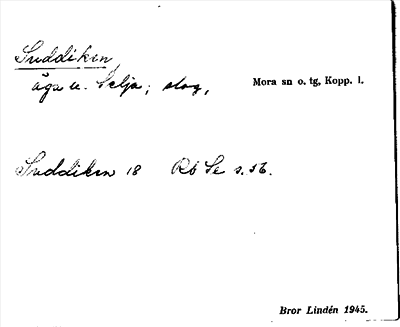 Suddiken,
äga u. Selja; skog,
Mora sn o. tg, Kopp. l.
Suddiken 18 Rb Se s. 56.
Bror Lindén 1945.